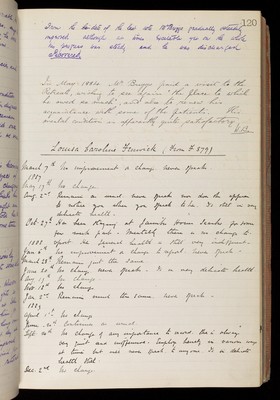 120
From the last date of the last note Mr Buggs gradually steadily
improved although at times irritable yet on the whole
his progress was steady and he was discharged
Recovered.
In May 1884 Mr Buggs paid a visit to the
Retreat, wishing to see again "the place to which
he owed so much", and also to renew his
acquaintance with some of the patients. His
mental condition is apparently quite satisfactory.
Louisa Caroline Fenwick (From F 379)
March 7th No improvement a change never speaks
1887
May 19th No change.
Aug. 2nd Remains as usual never speaks nor does she appear
to when you when you speak to her. Is still in very
delicate health.
Oct. 29th Has been staying at Sands for some
time much past. Mentally there is no change to
1888 report. Her general health is still very indifferent.
Jan 6th No improvement a change to report never speaks
March 28th Remains just the same
June 20th No change never speaks. Is in very delicate health
Aug. 13th No change
Oct. 18th No change
Jan 2nd Remains much the same never speaks.
1889
April 1st No change
June 24th Continues as usual
Sept. 24th No change of any importance to record. She is always
very quiet and inoffensive. Employs herself in various ways
at times but will never speak to anyone. Is in delicate
health still.
Dec. 2nd No change